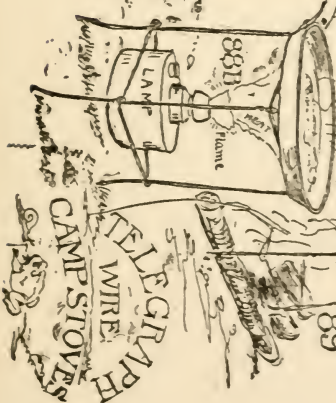 88B
LAMP
Flame
TELEGRAPH
WIRE
CAMP STOVES
89